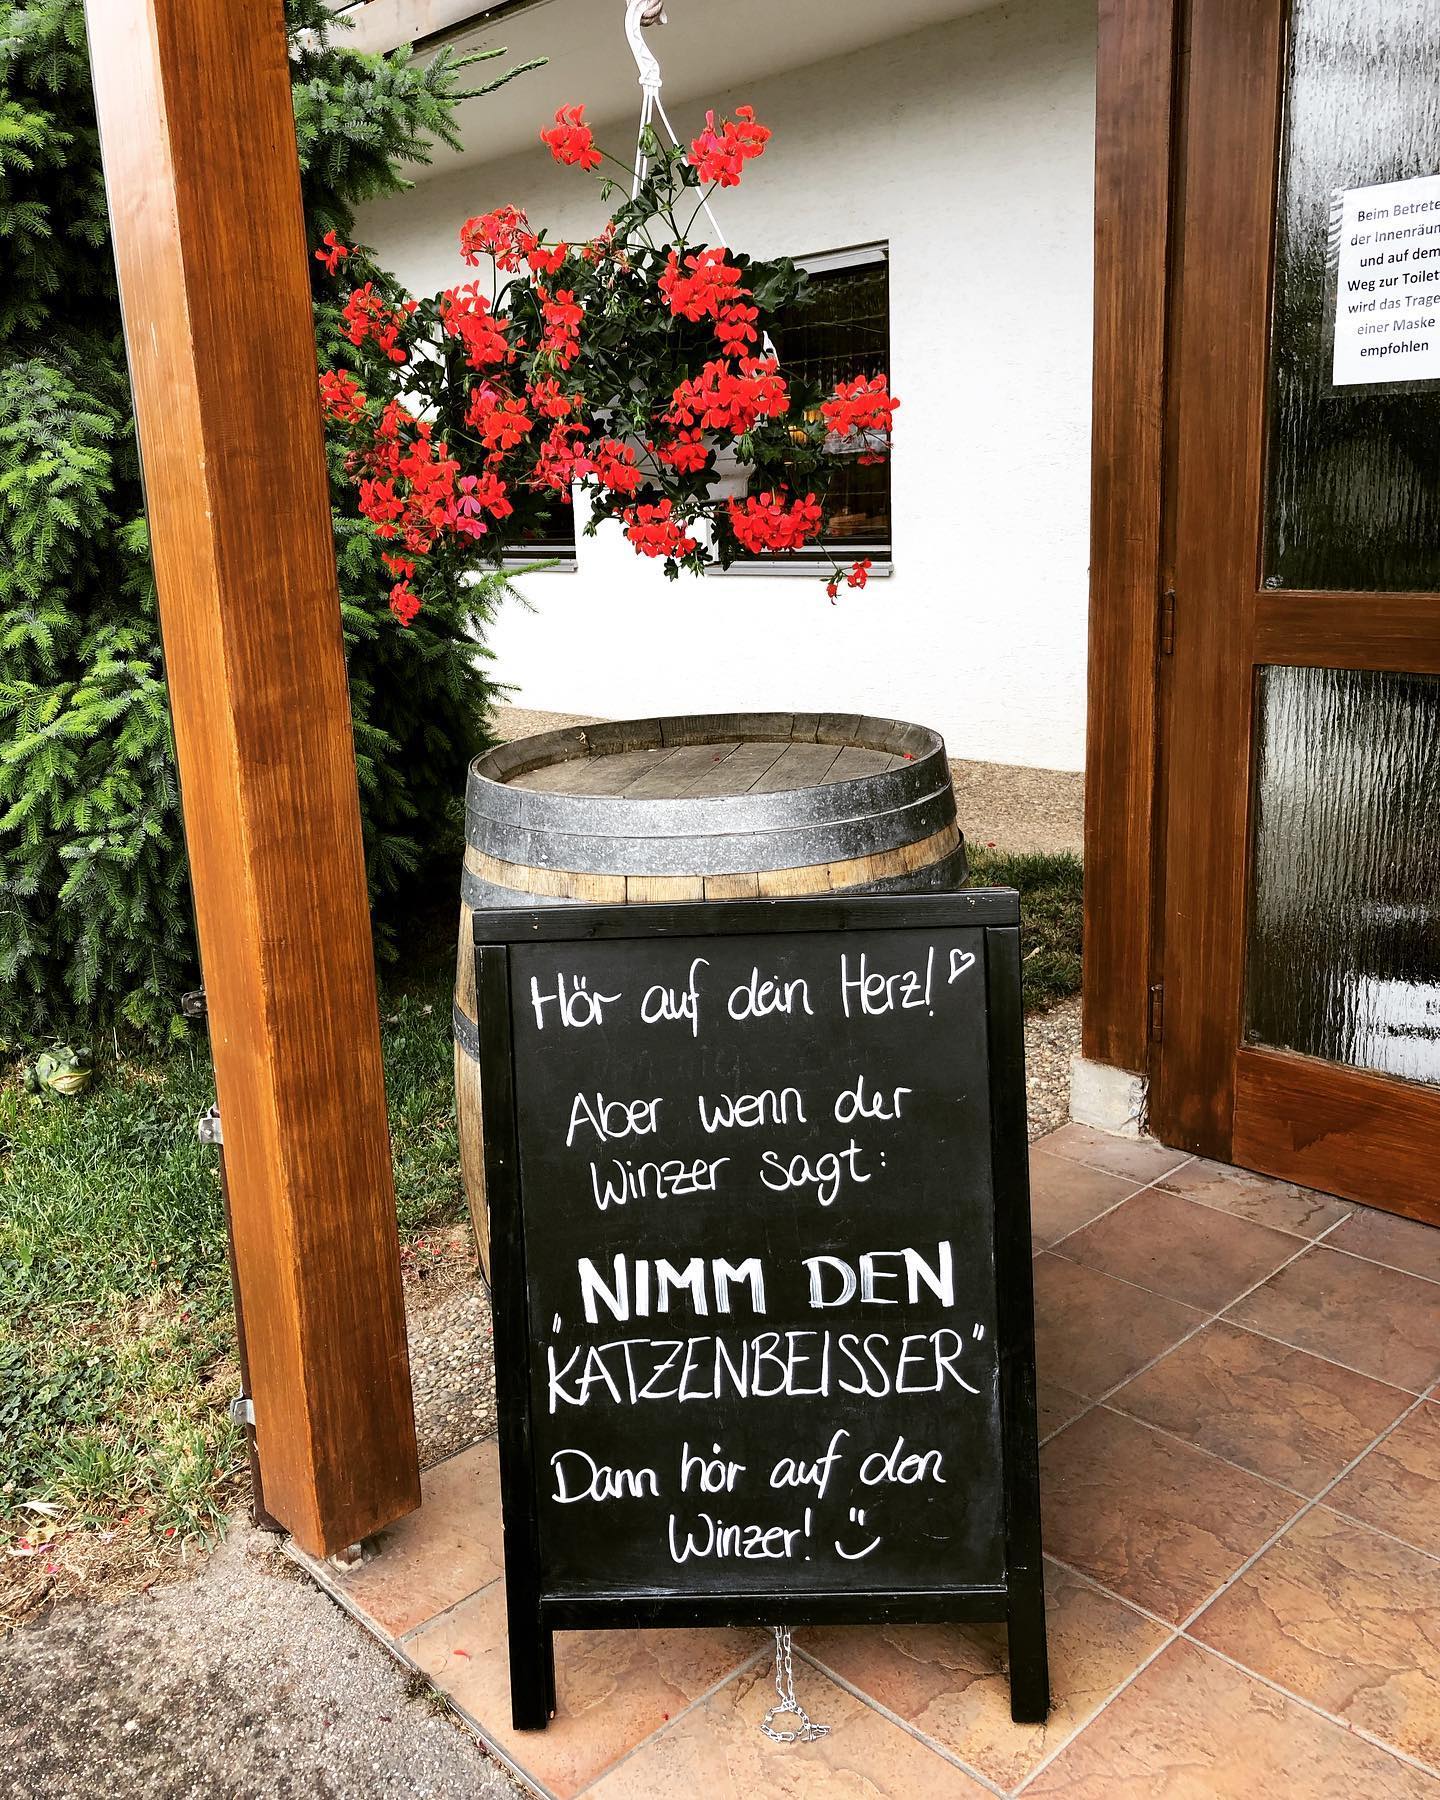 Beim Betrete
der Innenräum
und auf dem
Weg zur Toilett
wird das Trage
einer Maske
empfohlen
Hör auf dein Herz! ♡
Aber wenn der
Winzer sagt:
„NIMM DEN
KATZENBEISSER"
Dann hör auf den
Winzer! ¨)